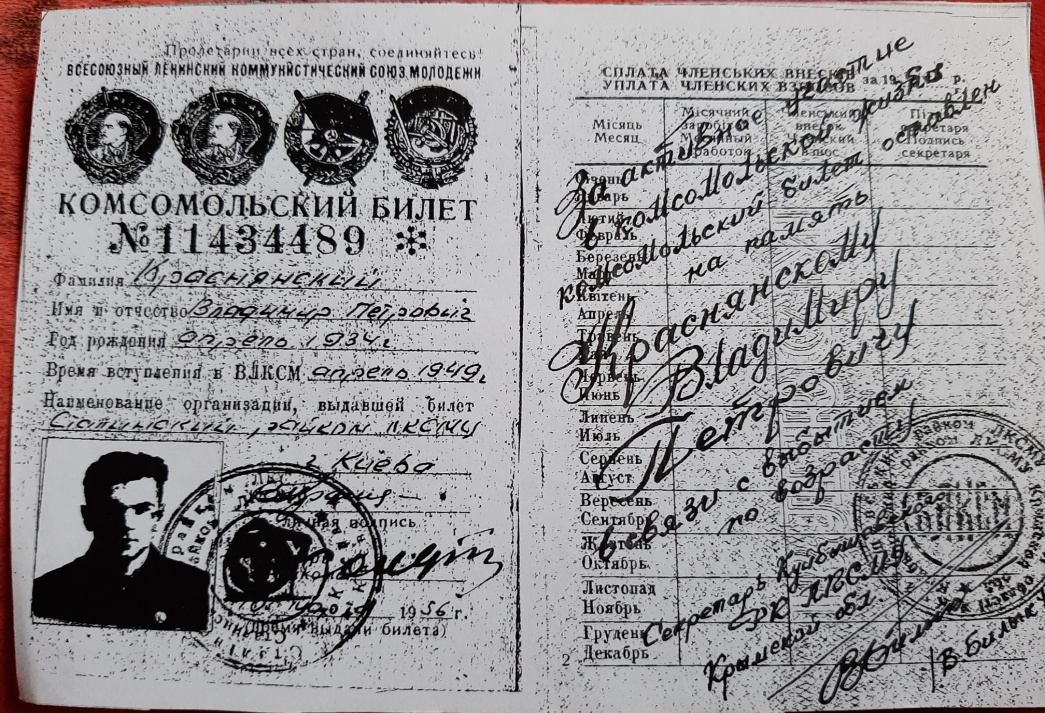 Пролетарии всех стран, соединяйтесь!
ВСЕСОЮЗНЫЙ ЛЕНИНСКИЙ КОММУНИСТИЧЕСКИЙ СОЮЗ МОЛОДЕЖИ
КОМСОМОЛЬСКИЙ БИЛЕТ
№11434489
Фамилия Краснянский
Имя и отчество Владимир Петрович
Год рождения апрель 1934 г.
Время вступления в ВЛКСМ апрель 1949 г.
Наименование организации, выдавшей билет
Сталинский райком ЛКСМУ
г. Киева
Личная подпись
1956 г.
(Время выдачи билета)
СПЛАТА ЧЛЕНСЬКИХ ВНЕСКІВ
УПЛАТА ЧЛЕНСКИХ ВЗНОСОВ за 19 г.
Місяць
Месяц
Місячний заробіток
Підпис секретаря
Подпись секретаря
За активное участие
в комсомольской жизни
комсомольский билет оставлен
на память
Краснянскому
Владимиру
Петровичу
в связи с выбытием
по возрасту
Секретарь Куйбышевского
РК ЛКСМУ
Крымской обл
В. Билык
Январь
Лютий
Февраль
Березень
Март
Квітень
Апрель
Травень
Червень
Июнь
Липень
Июль
Серпень
Август
Вересень
Сентябрь
Жовтень
Октябрь
Листопад
Ноябрь
Грудень
Декабрь
2
ВЛКСМ